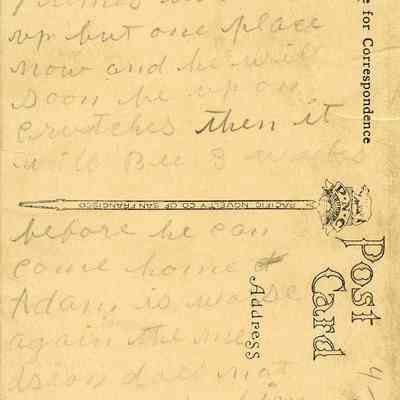 up but one place
now and he will
soon be up on
crutches then it
will Bee 3 weeks
before he can
come home &
Adam is worse
again the me
dsion does not
e for Correspondence
PACIFIC NOVELTY CO OF SAN FRANCISCO
P.N.C
Post
Card
Address